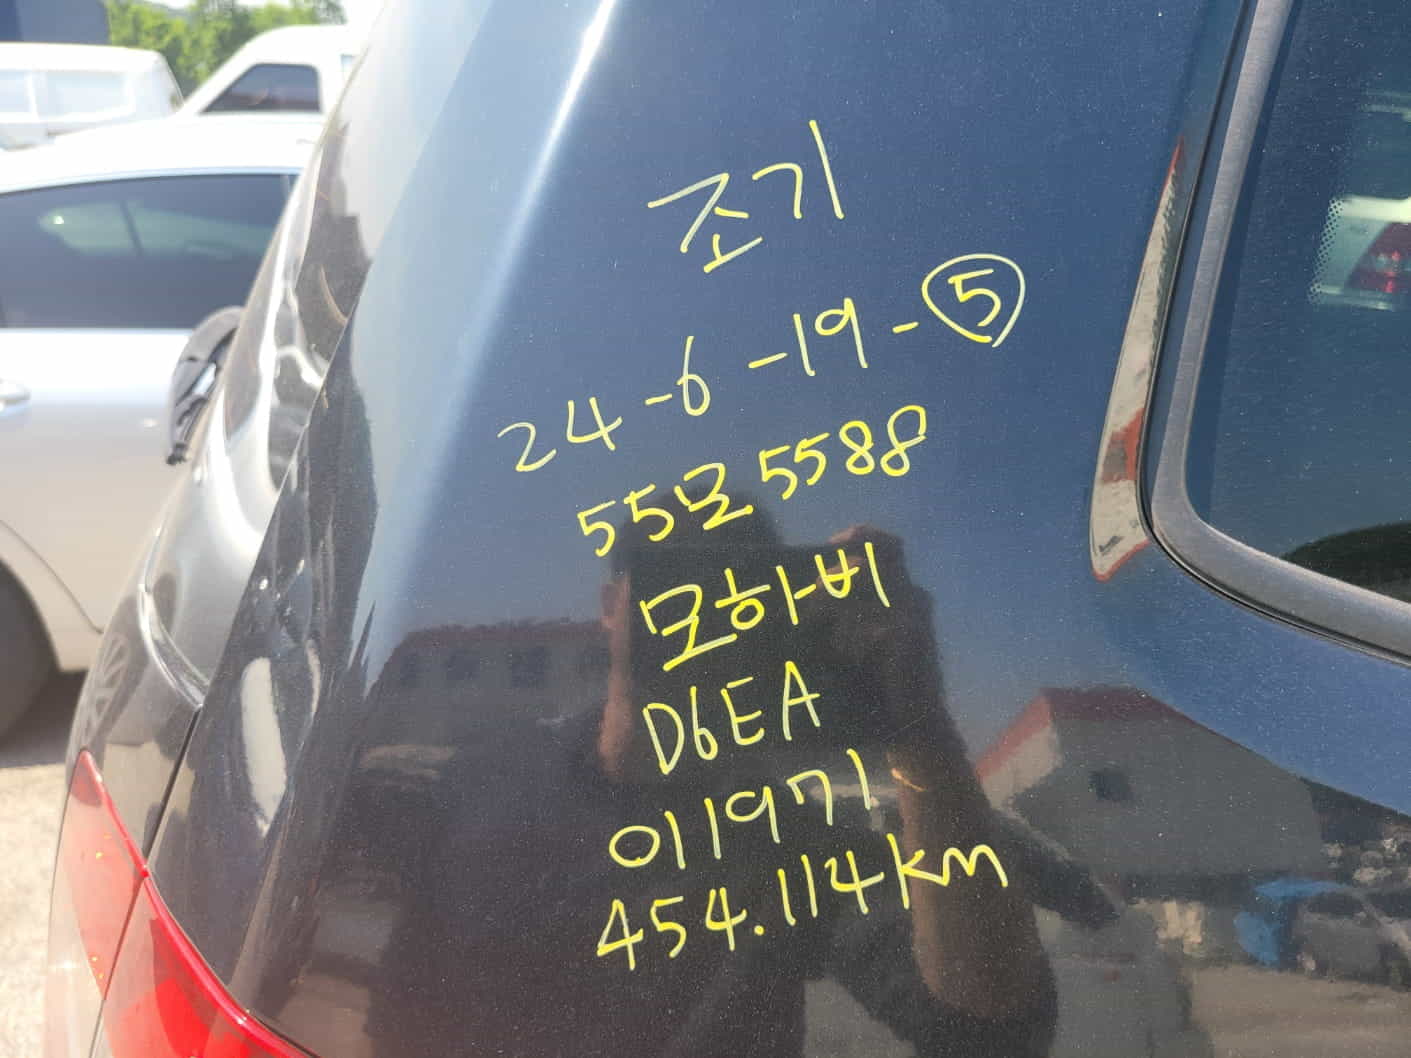 조기
24-6-19-⑤
55모5588
모하비
D6EA
011971
454.114km